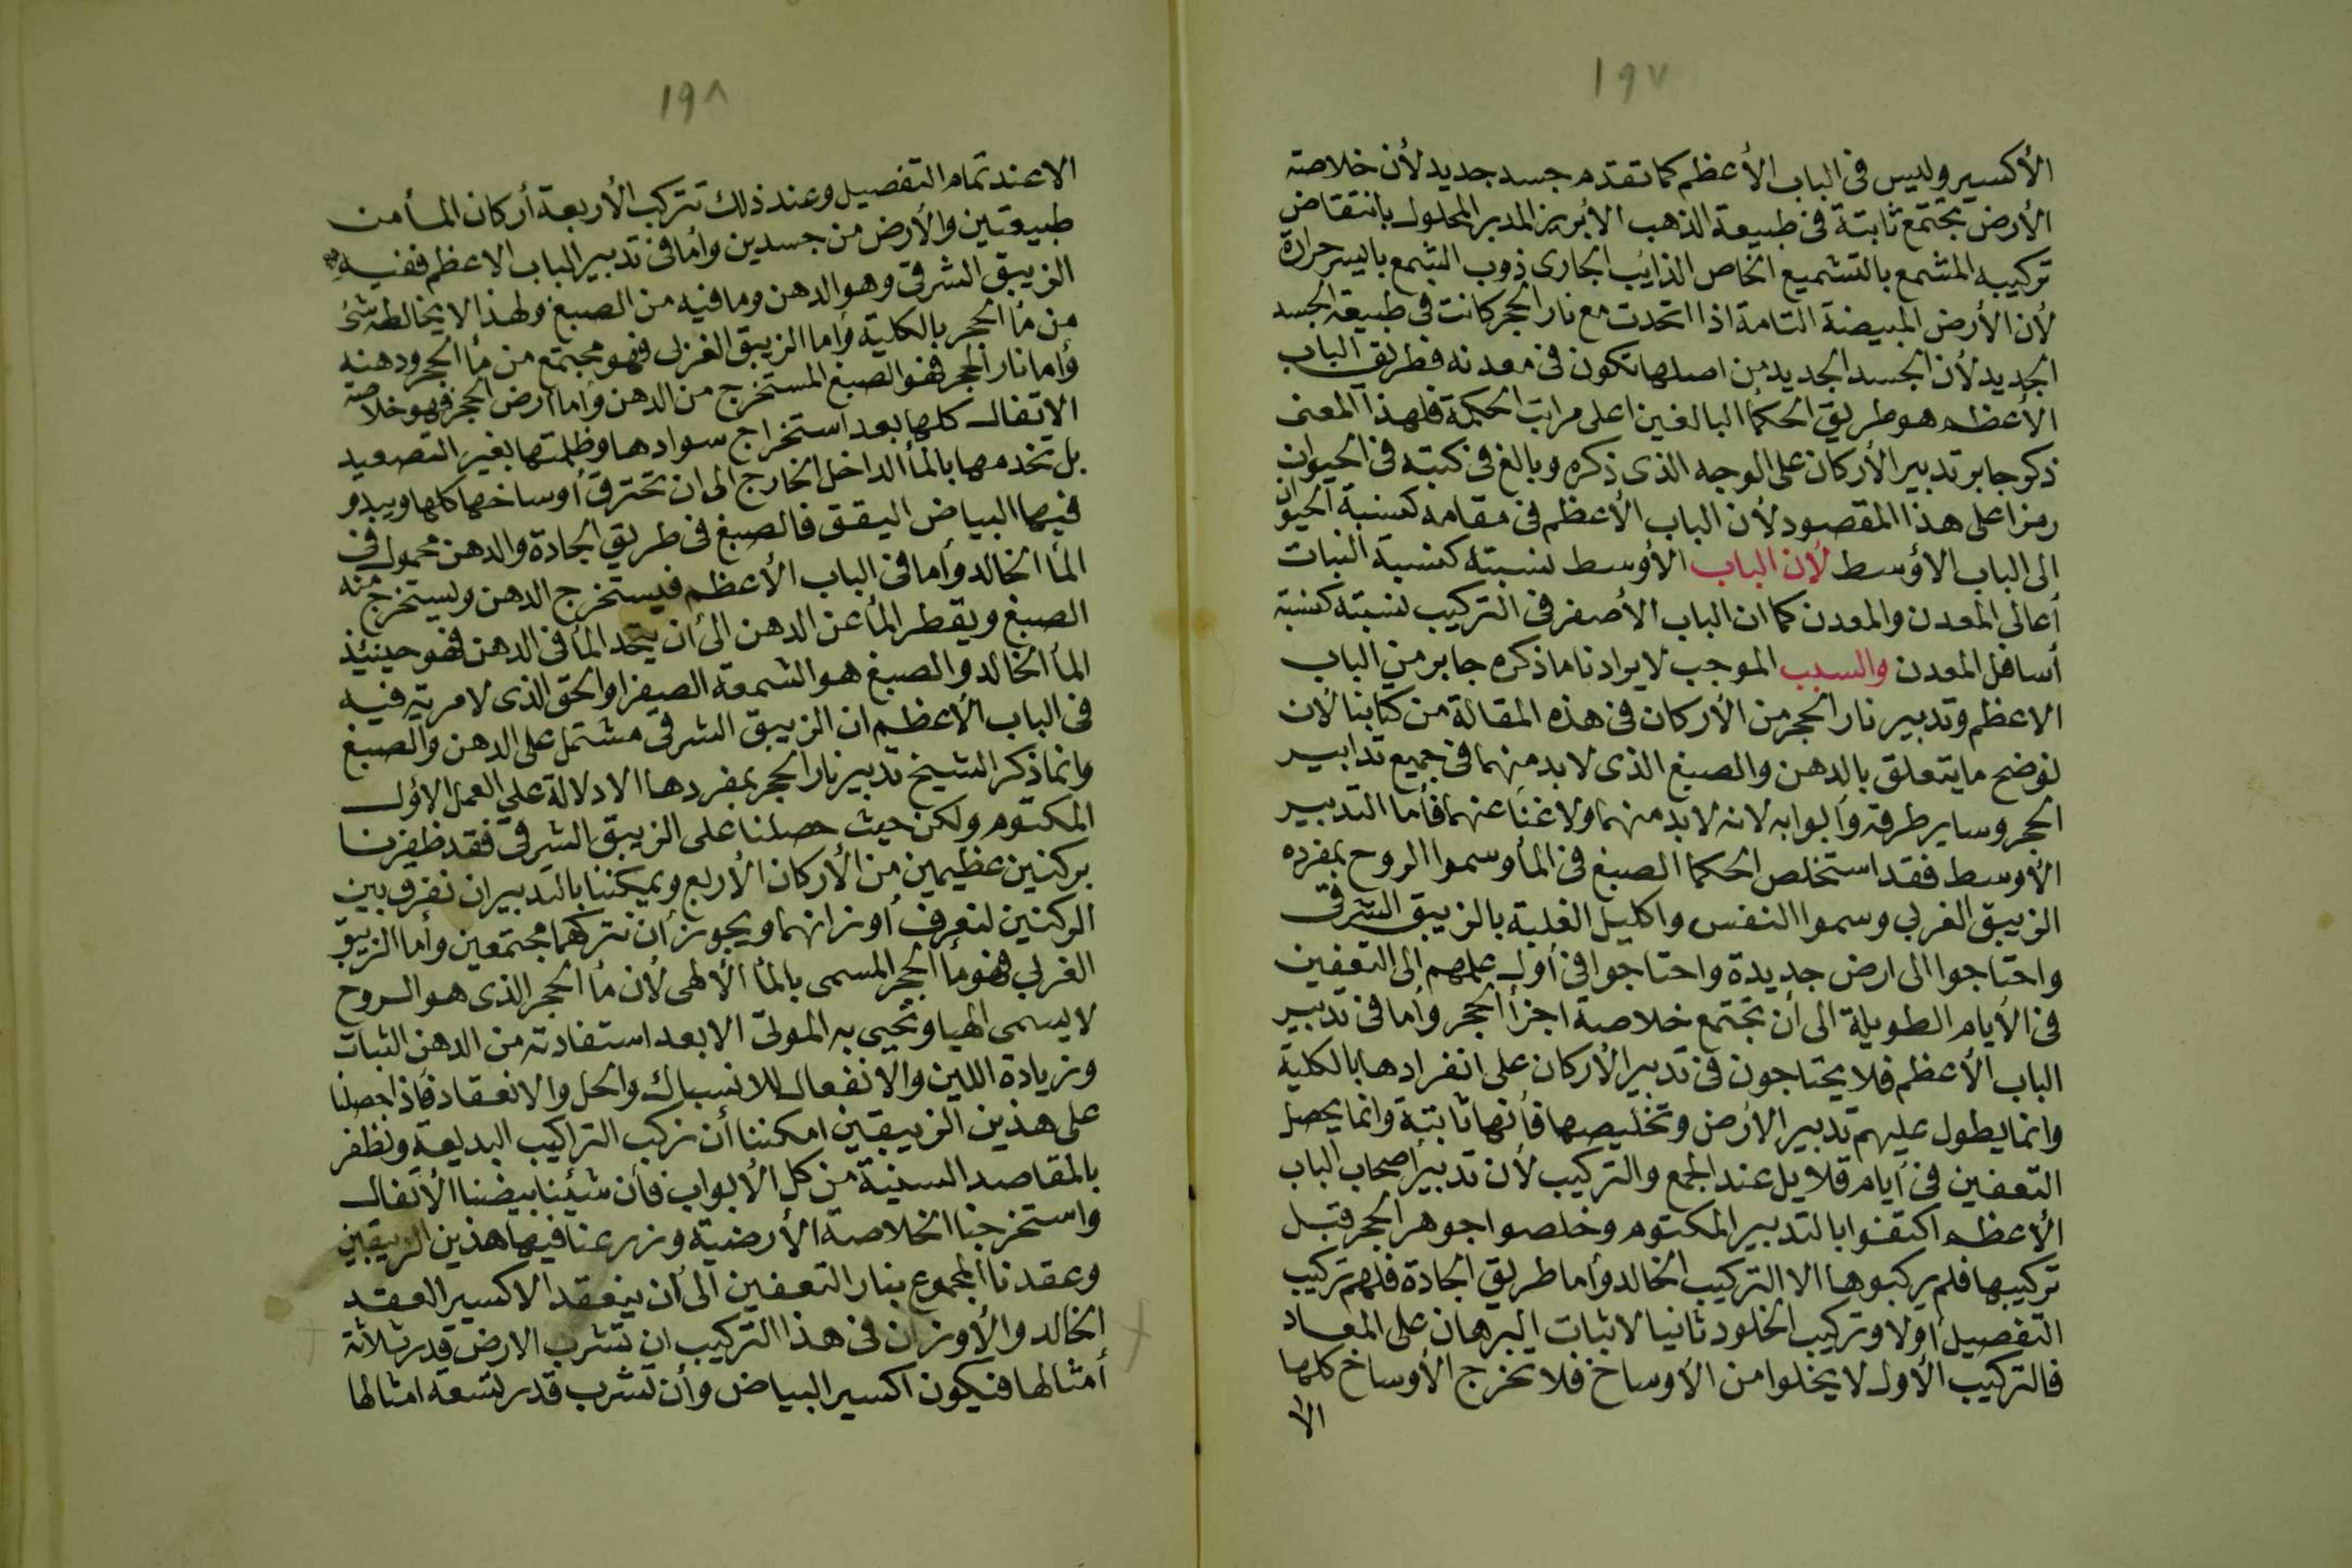 ١٩٧
الأكسير وليس فى الباب الأعظم كما تقدم جسد جديد لأن خلاصة
الأرض تجتمع ثابتة فى طبيعة الذهب الأبريز المدبر المحلول بانتقاض
تركيبه المشمع بالتشميع الخاص الذايب الجارى ذوب الشمع بايسر حرارة
لأن الأرض المبيضة التامة اذا اتحدت مع نار الحجر كانت فى طبيعة الجسد
الجديد لأن الجسد الجديد من اصلها تكون فى معدنه فطريق الباب
الأعظم هو طريق الحكما البالغين اعلى مراتب الحكمة فلهذا المعنى
ذكر جابر تدبير الأركان على الوجه الذى ذكره وبالغ فى كتبه فى الحيوان
رمزا على هذا المقصود لأن الباب الأعظم فى مقامه كنسبة الحيوان
الى الباب الأوسط لأن الباب الأوسط نسبته كنسبة النبات
أعالى المعدن والمعدن كما ان الباب الأصغر فى التركيب نسبته كنسبة
أسافل المعدن والسبب الموجب لايرادنا ما ذكره جابر من الباب
الاعظم وتدبير نار الحجر من الأركان فى هذه المقالة من كتابنا لأن
نوضح ما يتعلق بالدهن والصبغ الذى لا بد منهما فى جميع تدابير
الحجر وساير طرقه وأبوابه لانه لا بد منهما ولا غنا عنهما فأما التدبير
الأوسط فقد استخلص الحكما الصبغ فى المأ وسموا الروح بمفرده
الزيبق الغربي وسموا النفس واكليل الغلبة بالزيبق الشرقى
واحتاجوا الى ارض جديدة واحتاجوا فى أول عملهم الى التعفين
فى الأيام الطويلة الى أن تجتمع خلاصة اجزأ الحجر وأما فى تدبير
الباب الأعظم فلا يحتاجون فى تدبير الأركان على انفرادها بالكلية
وانما يطول عليهم تدبير الارض وتخليصها فأنها ثابتة وانما يحصل
التعفين فى أيام قلايل عند الجمع والتركيب لأن تدبير أصحاب الباب
الأعظم اكتفوا بالتدبير المكتوم وخلصوا جوهر الحجر قبل
تركيبها فلم يركبوها الا التركيب الخالد وأما طريق الجادة فلهم تركيب
التفصيل أولا وتركيب الخلود ثانيا لاثبات البرهان على المعاد
فالتركيب الأول لا يخلوا من الأوساخ فلا تخرج الأوساخ كلها
الا
١٩٨
الا عند تمام التفصيل وعند ذلك تتركب الأربعة أركان المأ من
طبيعتين والأرض من جسدين وأما فى تدبير الباب الاعظم ففيه
الزيبق الشرقى وهو الدهن وما فيه من الصبغ ولهذا لا يخالطه شئ
من مأ الحجر بالكلية وأما الزيبق الغربى فهو مجتمع من مأ الحجر ودهنه
وأما نار الحجر فهو الصبغ المستخرج من الدهن وأما أرض الحجر فهو خلاصة
الاتفال كلها بعد استخراج سوادها وظلمتها بغير التصعيد
بل تخدمها بالمأ الداخل الخارج الى ان تحترق أوساخها كلها ويبدو
فيها البياض اليقق فالصبغ فى طريق الجادة والدهن محمول فى
المأ الخالد وأما فى الباب الأعظم فيستخرج الدهن ويستخرج منه
الصبغ ويقطر المأ عن الدهن الى أن يتحد المأ فى الدهن فهو حينئذ
المأ الخالد والصبغ هو الشمعة الصفرا والحق الذى لا مرية فيه
فى الباب الأعظم ان الزيبق الشرقى مشتمل على الدهن والصبغ
وانما ذكر الشيخ تدبير نار الحجر بمفردها الا دلالة على العمل الأول
المكتوم ولكن حيث حصلنا على الزيبق الشرقى فقد ظفرنا
بركنين عظيمين من الأركان الأربع ويمكننا بالتدبير ان نفرق بين
الركنين لنعرف أوزانهما ويجوز أن نتركهما مجتمعين وأما الزيبق
الغربي فهو مأ الحجر المسمى بالمأ الألهى لأن مأ الحجر الذى هو الروح
لا يسمى الهيا وتحيى به الموتى الا بعد استفادته من الدهن الثبات
وزيادة اللين والانفعال للانسباك والحل والانعقاد فأذا حصلنا
على هذين الزيبقين امكننا أن نركب التراكيب البديعة ونظفر
بالمقاصد السنية من كل الأبواب فأن شئنا بيضنا الأتفال
واستخرجنا الخلاصة الأرضية وزرعنا فيها هذين الزيبقين
وعقدنا المجموع بنار التعفين الى أن ينعقد الاكسير العقد
الخالد والأوزان فى هذا التركيب ان تشرب الارض قدر ثلاثة
أمثالها فيكون اكسير البياض وأن تشرب قدر تسعة امثالها